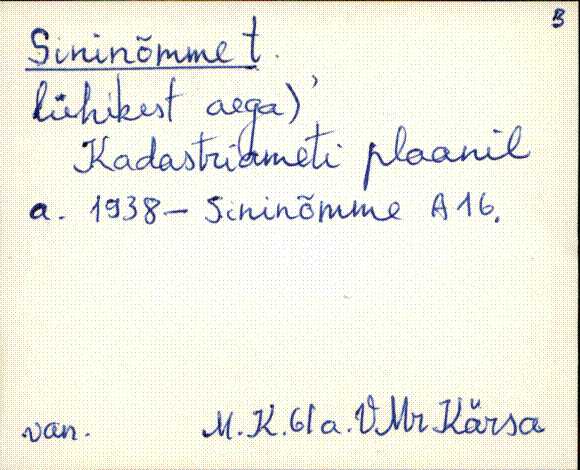 3
Sininõmme t.
lühikest aega)
Kadastriameti plaanil
a. 1938 – Sininõmme A 16.
van. M.K. 61 a. VMr Kärsa